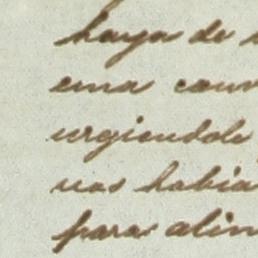 haya de
ema cau
urgiendole
nos habia
para alin